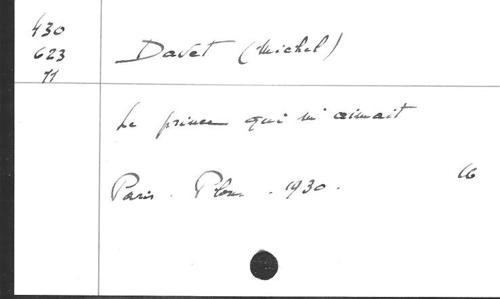 430
623
11
Davet (Michel)
Le prince qui m'aimait
Paris. Plon. 1930.
16